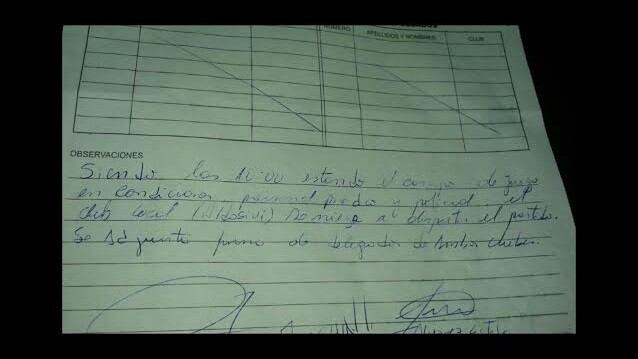 NUMERO APELLIDOS Y NOMBRES CLUB
OBSERVACIONES
Siendo las 10:00 estando el campo de juego
en condiciones personal medico y policial. el
club local (Aldosivi) se niega a disputar el partido.
Se adjunta firma de delegados de ambos clubes.